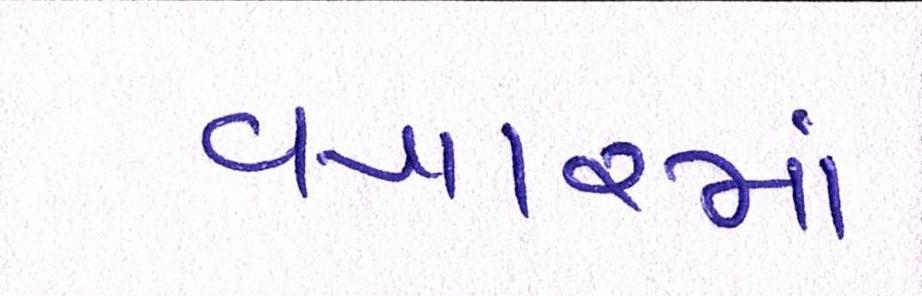 વખારમાં